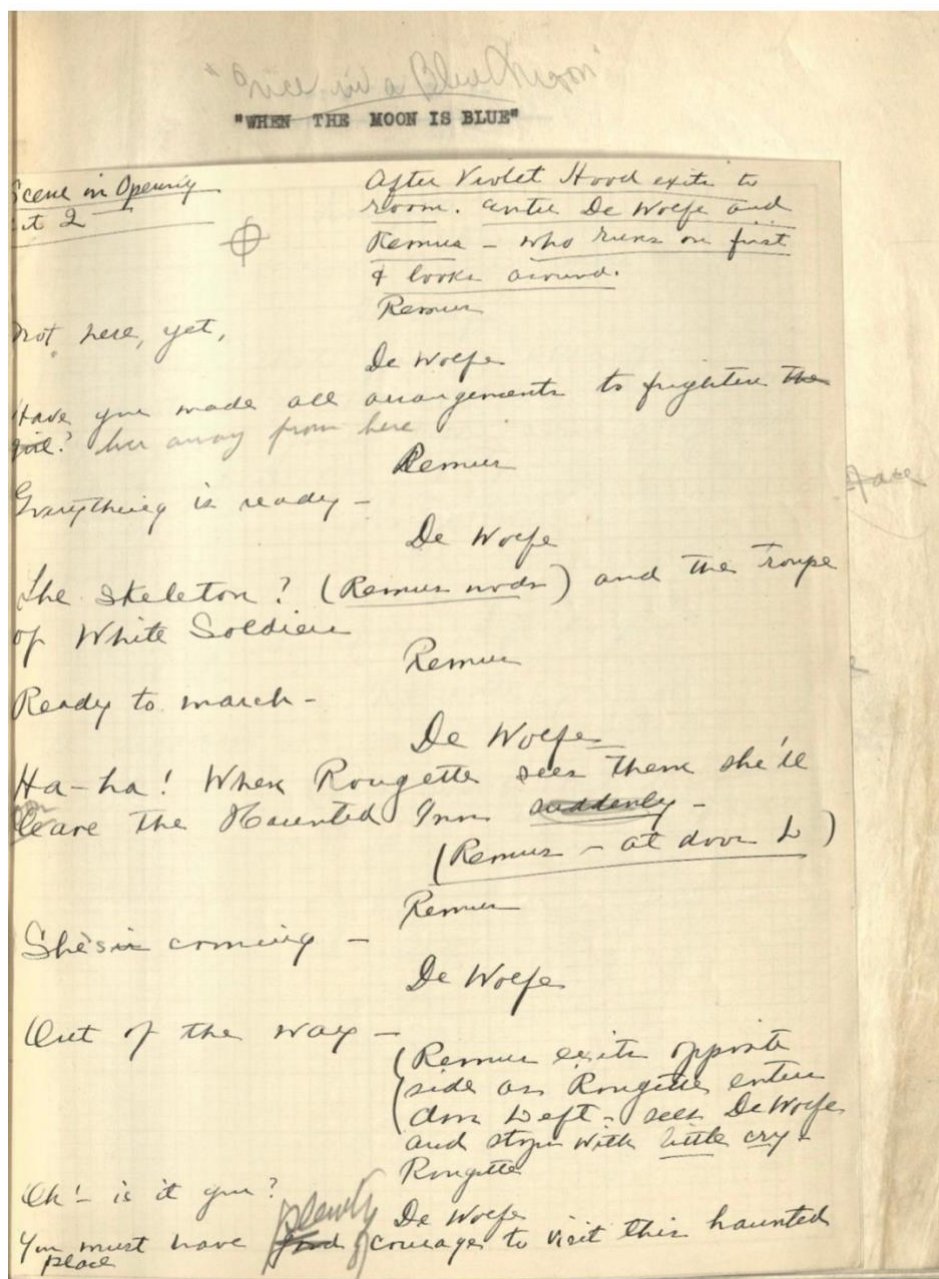 "Once in a Blue Moon"
"WHEN THE MOON IS BLUE"
Scene in Opening
ct 2
After Violet Hood exits to
room. Enter De Wolfe and
Remus - who runs on first
& looks around.
Remus
Not here, yet,
De Wolfe
Have you made all arrangements to frighten the
girl? her away from here
Remus
Everything is ready -
De Wolfe
The skeleton? (Remus nods) and the Troupe
of White Soldiers
Remus
Ready to march -
De Wolfe
Ha-ha! When Rougette sees them she'll
leave the Haunted Inn suddenly -
(Remus - at door L)
Remus
She's is coming -
De Wolfe
Out of the way -
(Remus exits opposite
side as Rougette enters
door Left - sees De Wolfe
and stops with little cry -
Rougette
Oh! - is it you?
De Wolfe
You must have plenty of courage to visit this haunted
place